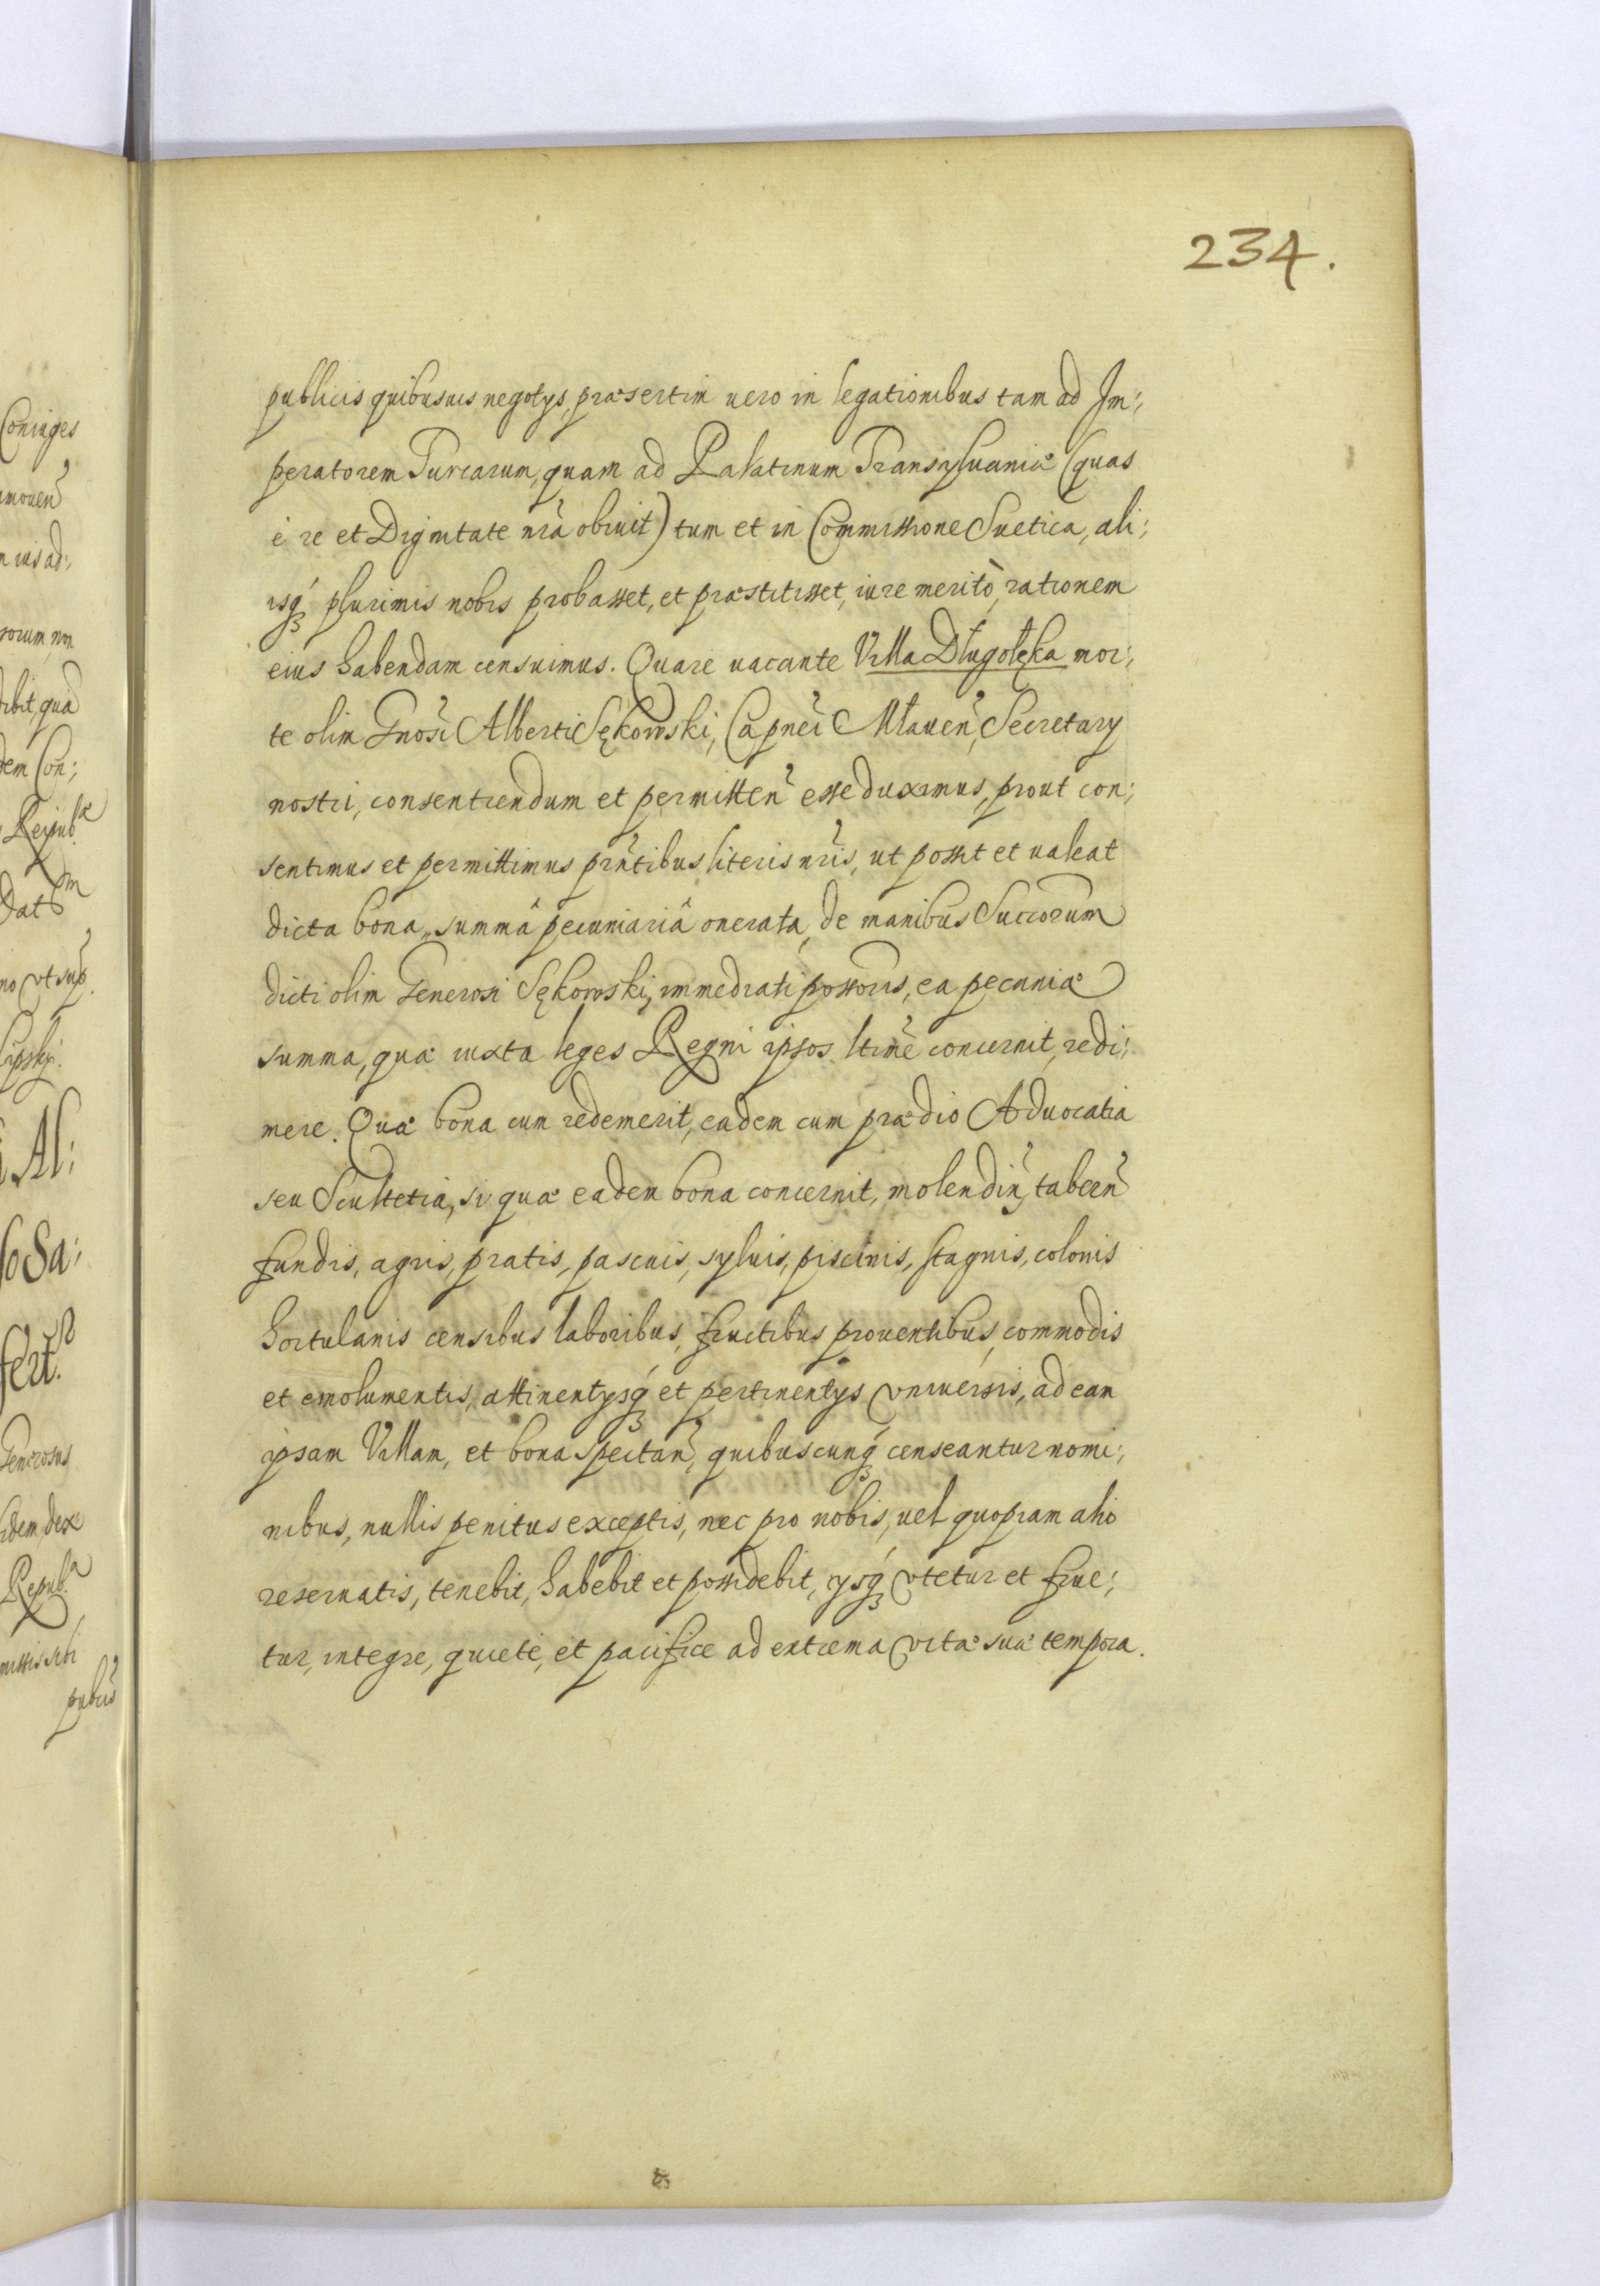 234.
publicis quibusuis negotys, præsertim uero in legationibus tam ad Im;
peratorem Turcarum, quam ad Palatinum Transyluaniæ (quas
è re et Dignitate nrã obiuit) tum et in Commissione Suetica, ali;
isq́ꝫ plurimis nobis probasset, et præstitisset, iure meritò, rationem
eius habendam censuimus. Quare uacante Villa Długołęka mor;
te olim Gnosi Alberti Sękowski, Capnei Młauen̄, Secretary
nostri, consentiendum et permitten̄ esse duximus, prout con;
sentimus et permittimus prñtibus literis nris, ut possit et ualeat
dicta bona, summâ pecuniariâ onerata, de manibus Succorum
dicti olim Generosi Sękowski, immediati possoris, ea pecuniæ
summa, quæ iuxta leges Regni ipsos ltime concernit, redi;
mere. Quæ bona cum redemerit, eadem cum prædio Aduocatia
seu Scultetia, si quæ eadem bona concernit, molendin̄, tabern̄
fundis, agris, pratis, pascuis, syluis, piscinis, stagnis, colonis
hortulanis censibus laboribus, fructibus prouentibus, commodis
et emolumentis, attinentysq́ꝫ et pertinentys vniuersis, ad eam
ipsam Villam, et bona spectan̄, quibuscunq́ꝫ censeantur nomi;
nibus, nullis penitus exceptis, nec pro nobis, uel quopiam alio
reseruatis, tenebit, habebit et possidebit, ysq́ꝫ vtetur et frue;
tur, integre, quiete, et pacifice ad extrema vitæ suæ tempora.